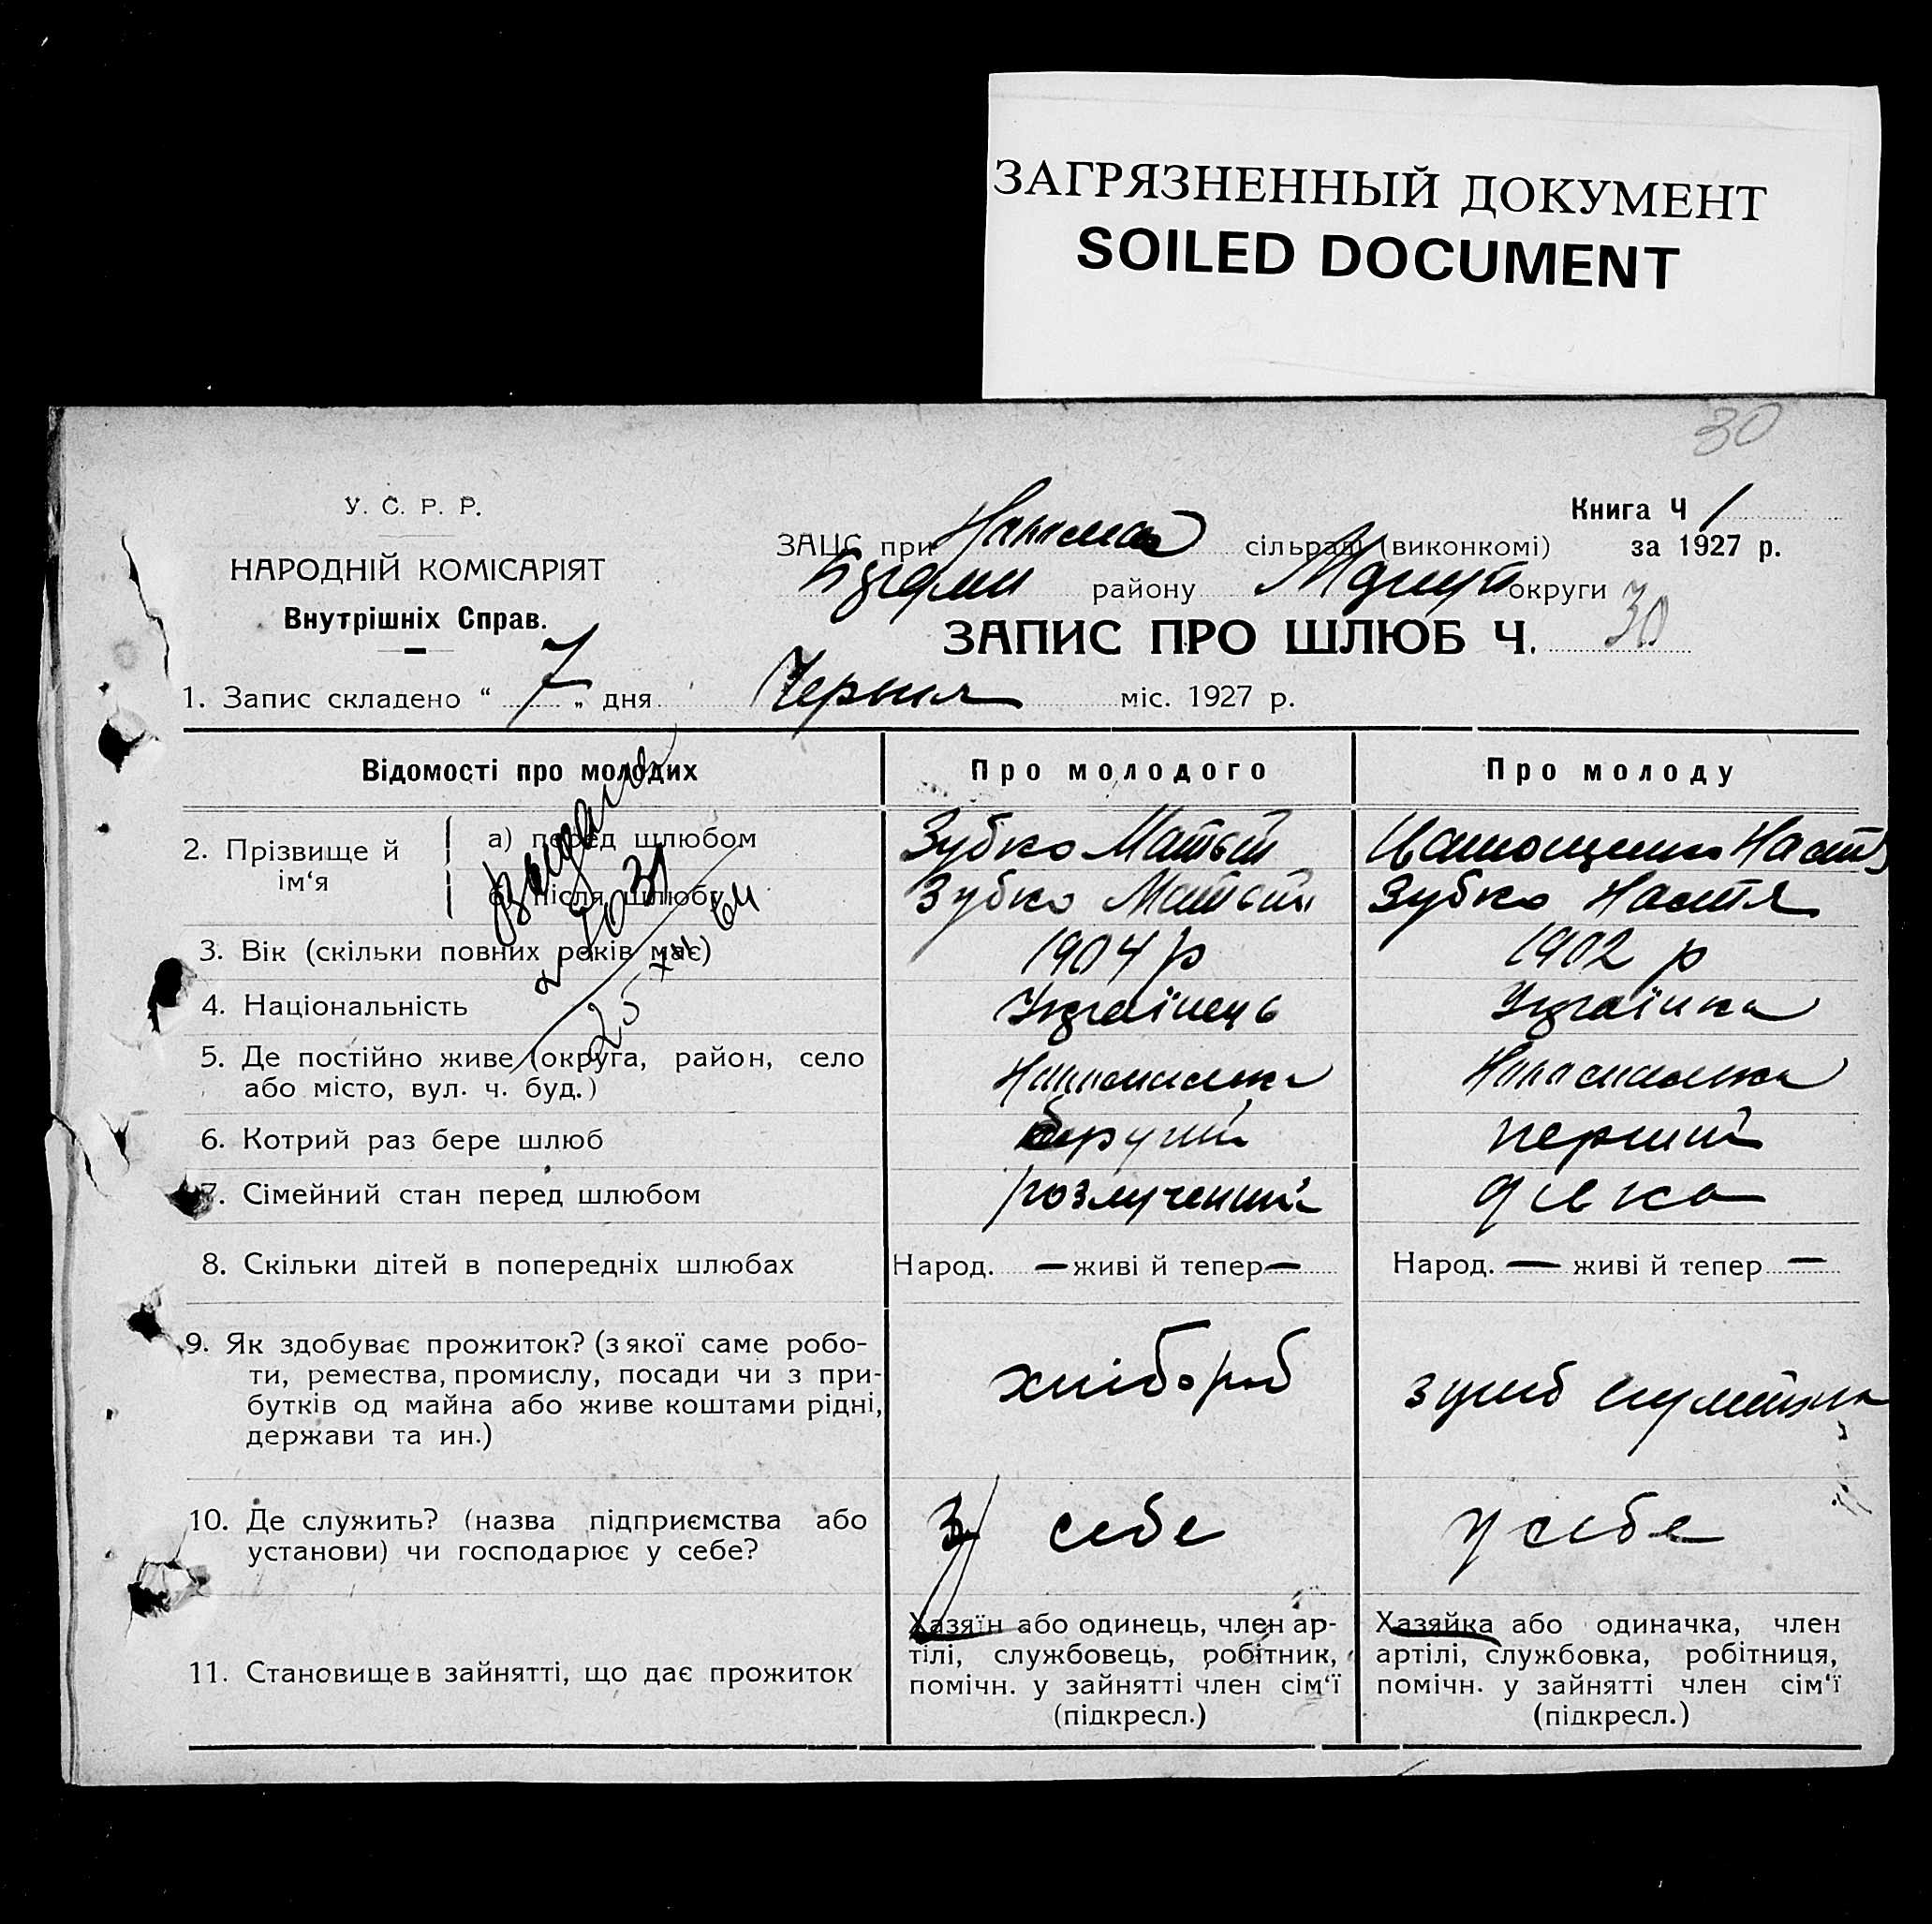 ЗАГРЯЗНЕННЫЙ ДОКУМЕНТ
SOILED DOCUMENT
30
У. С. Р. Р.
НАРОДНІЙ КОМІСАРІЯТ
Внутрішніх Справ.
Книга Ч 1
ЗАЦС при сільраді (виконкомі) за 1927 р.
району округи
ЗАПИС ПРО ШЛЮБ Ч. 30
1. Запис складено “ 7 „ дня Червня міс. 1927 р.
Відомості про молодих
Про молодого
Про молоду
2. Прізвище й ім‘я
а) перед шлюбом
Зубко Матвій
Настя
б) після шлюбу
Зубко Матвій
Зубко Настя
3. Вік (скільки повних років має)
1904 р
1902 р
4. Національність
Українець
Українка
5. Де постійно живе (округа, район, село
або місто, вул. ч. буд.)
6. Котрий раз бере шлюб
другий
перший
7. Сімейний стан перед шлюбом
розлучений
дівка
8. Скільки дітей в попередніх шлюбах
Народ. — живі й тепер —
Народ. — живі й тепер —
9. Як здобуває прожиток? (з якої саме робо-
ти, ремества, промислу, посади чи з при-
бутків од майна або живе коштами рідні,
держави та ин.)
хлібороб
10. Де служить? (назва підприємства або
установи) чи господарює у себе?
у себе
у себе
11. Становище в зайнятті, що дає прожиток
Хазяїн або одинець, член ар-
тілі, службовець, робітник,
помічн. у зайнятті член сім‘ї
(підкресл.)
Хазяйка або одиначка, член
артілі, службовка, робітниця,
помічн. у зайнятті член сім‘ї
(підкресл.)